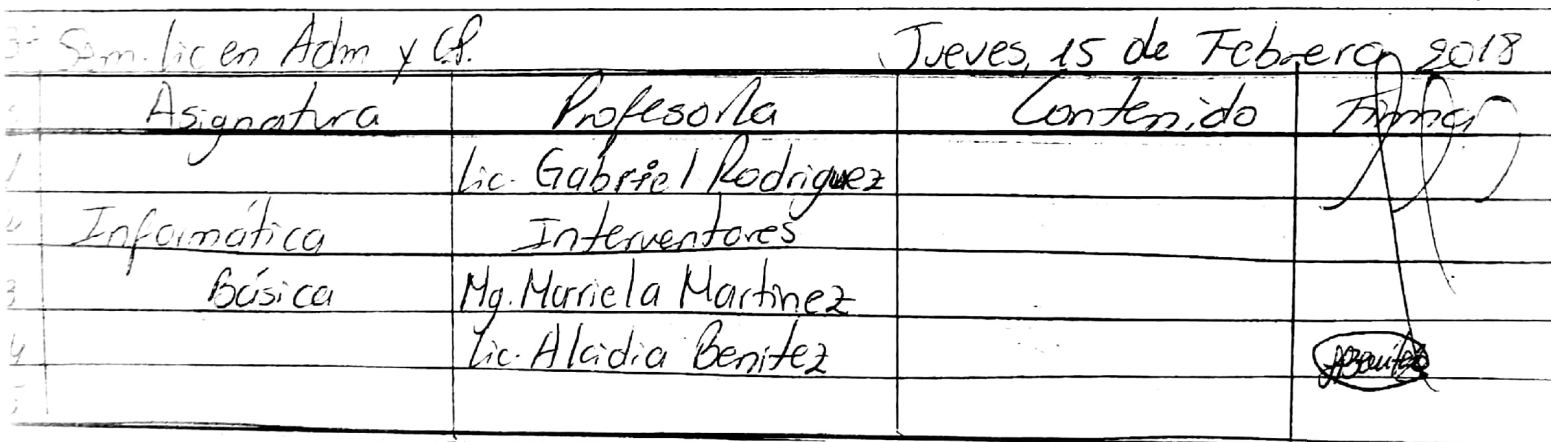 3º Sem. Lic en Adm y CP. Jueves, 15 de Febrero, 2018
Asignatura Profesor/a Contenido Firma
1 Lic. Gabriel Rodriguez
Informática Interventores
3 Básica Mg. Mariela Martinez
4 Lic. Alcidia Benitez ABenitez
5